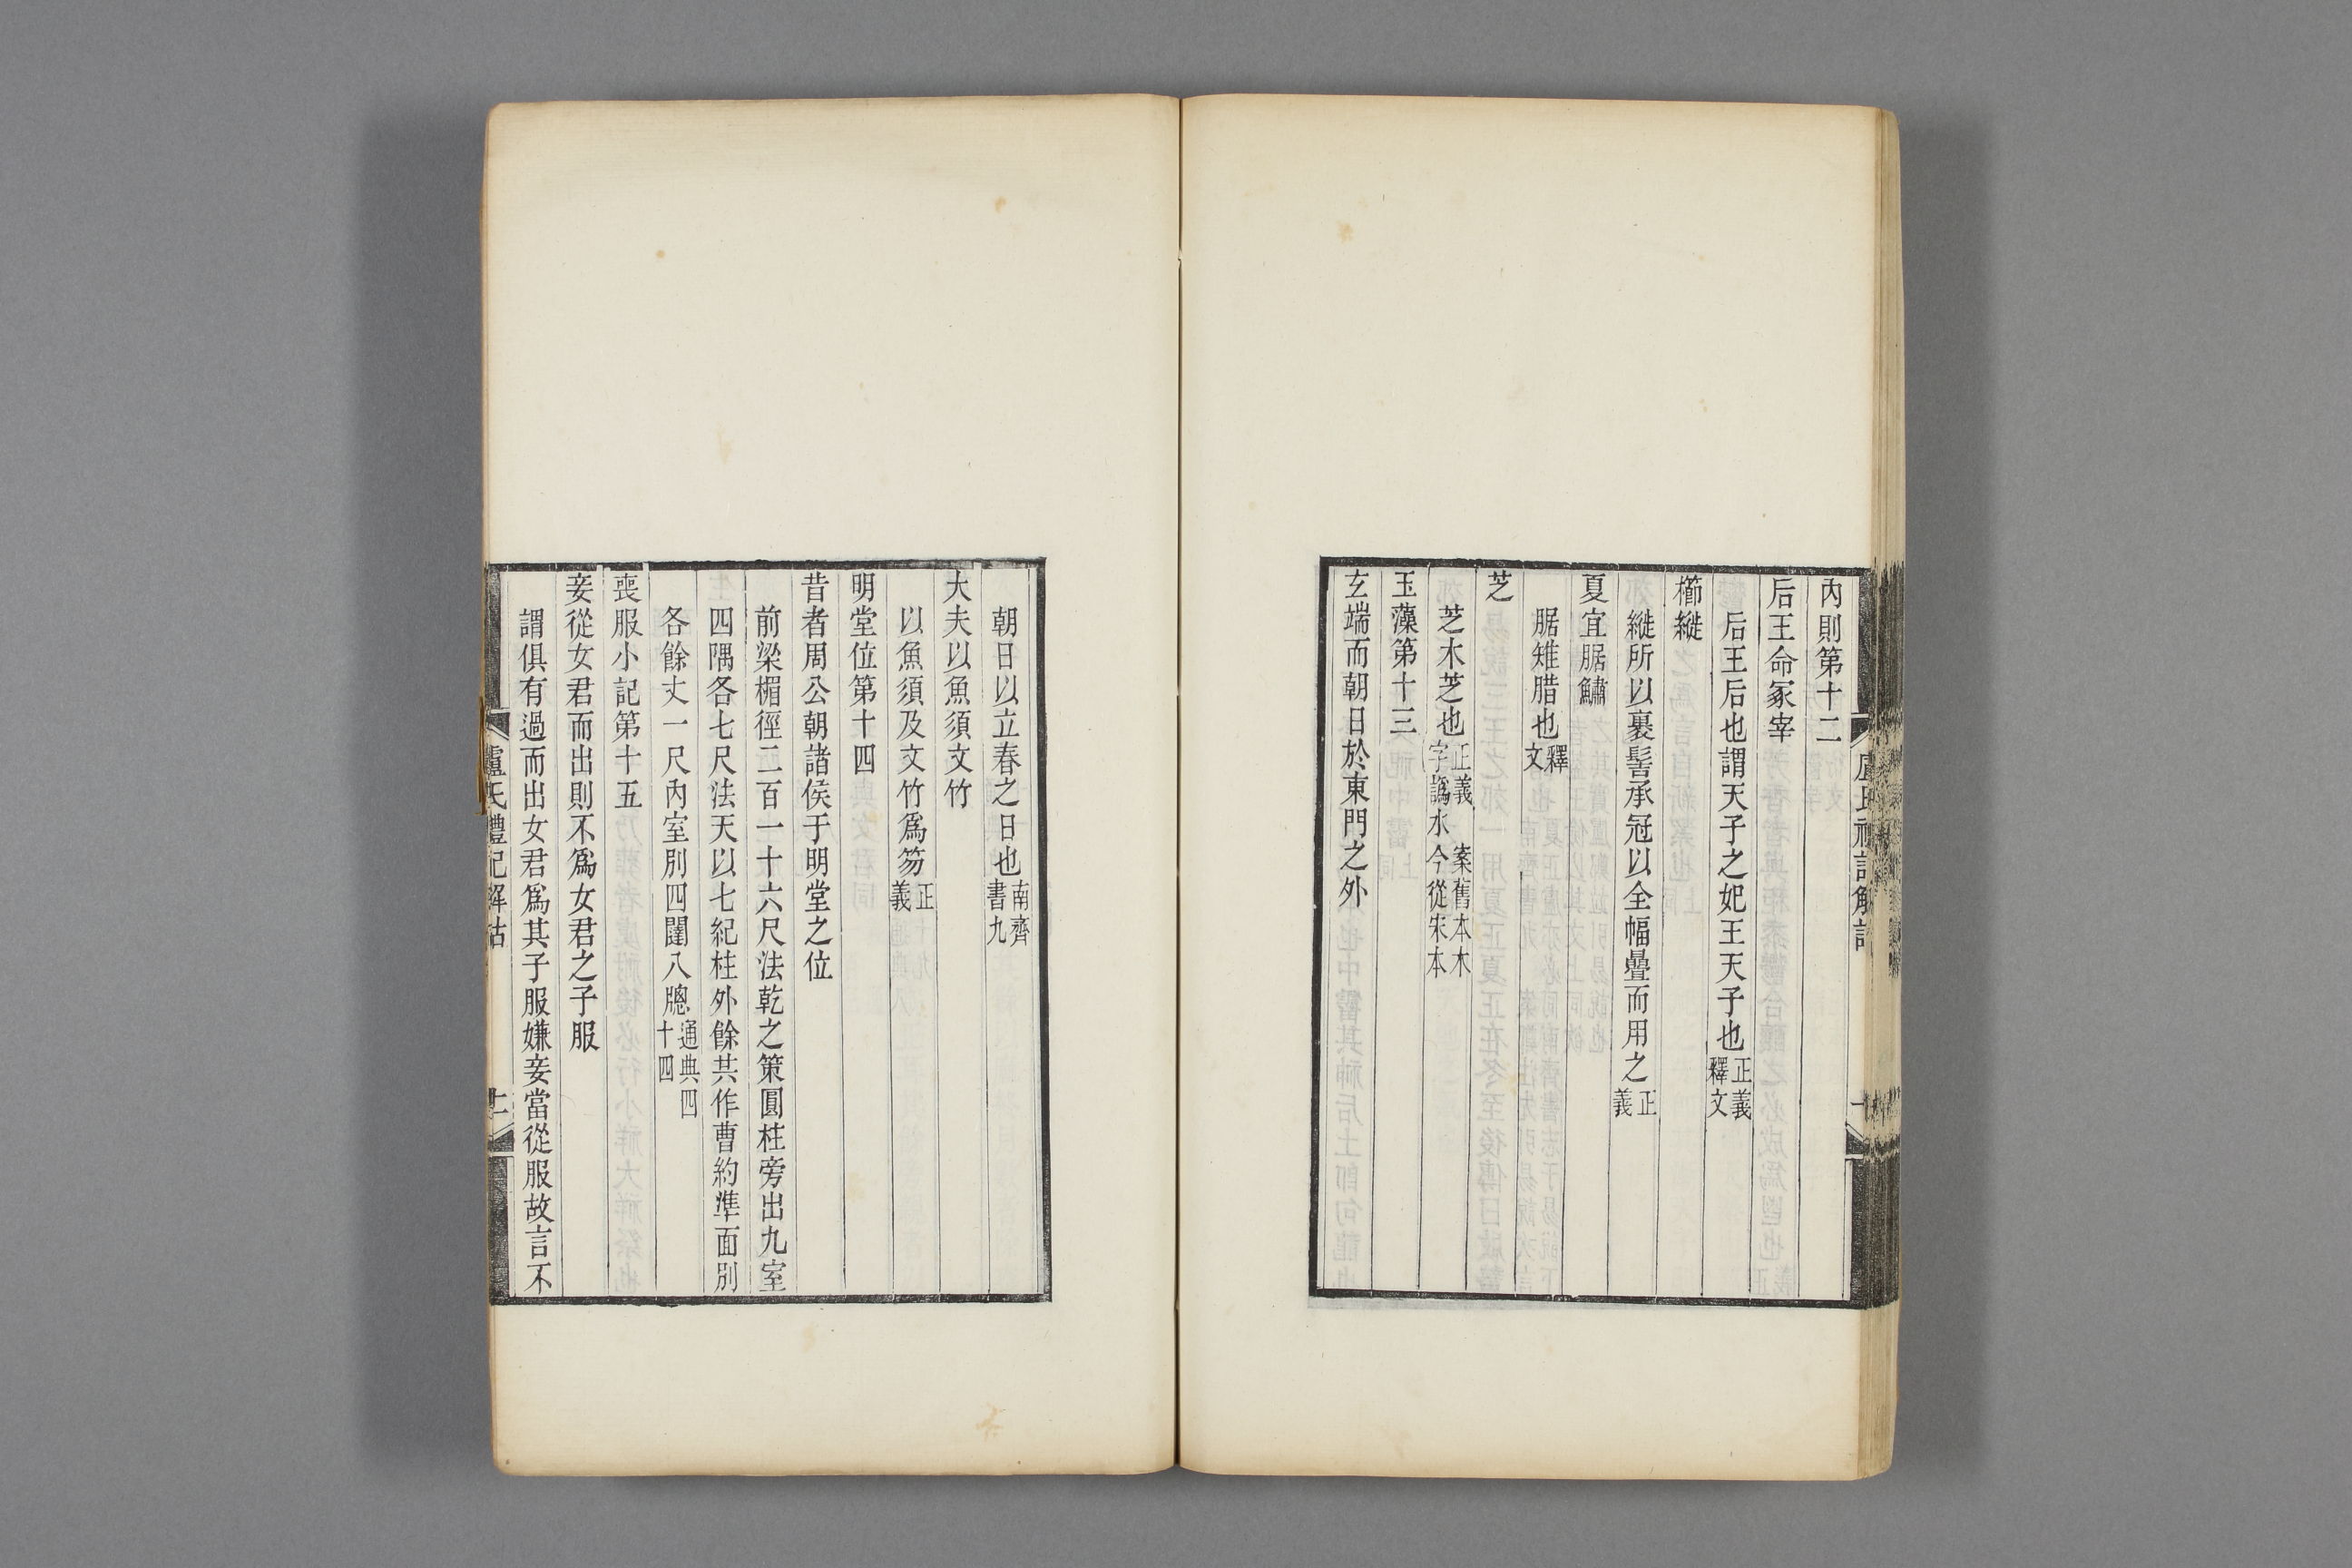 內則第十二
后王命冢宰
后王后也謂天子之妃王天子也正義釋文
櫛縰
縰所以裹髻承冠以全幅疊而用之正義
夏宜腒鱐
腒雉腊也釋文
芝
芝木芝也正義 案舊本木字譌水今從宋本
玉藻第十三
玄端而朝日於東門之外
朝日以立春之日也南齊書九
大夫以魚須文竹
以魚須及文竹爲笏正義
明堂位第十四
昔者周公朝諸侯于明堂之位
前梁楣徑二百一十六尺法乾之策圓柱旁出九室
四隅各七尺法天以七紀柱外餘共作曹約準面別
各餘丈一尺內室別四闥八牕通典四十四
喪服小記第十五
妾從女君而出則不爲女君之子服
謂俱有過而出女君爲其子服嫌妾當從服故言不
盧氏禮記解詁